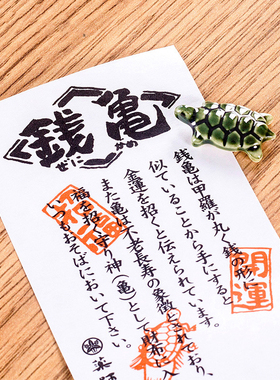 銭亀
ぜに かめ
銭亀は甲羅が丸く銭の形に
似ていることから手にすると
金運を招くと伝えられています。
また亀は不老長寿の象徴とされており、
福を招く守り神(亀)として財布に入
いつもおそばにおいて下さい。
薬師
開運
招福